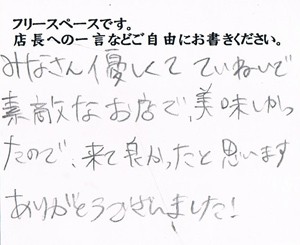 フリースペースです。
店長への一言などご自由にお書きください。
みなさん優しくて ていねいで
素敵なお店で、美味しかっ
たので、来て良かったと思います
ありがとうございました!